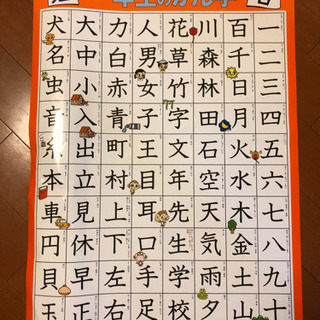 年生のかん字
一二三四五六七八九十
百千日月火水木金土山
川森林田石空天気雨夕
花草竹字文年先生学校
人男女子王目耳口手足
力白赤青町村上下左右
大中小入出立見休早正
犬名虫音糸本車円貝玉